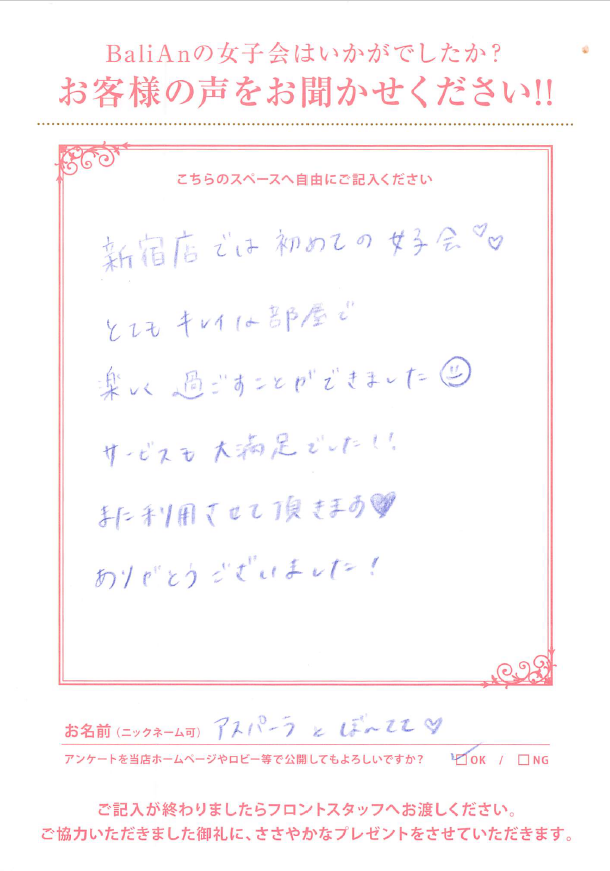 BaliAnの女子会はいかがでしたか?
お客様の声をお聞かせください!!
こちらのスペースへ自由にご記入ください
新宿店では初めての女子会♡♡
とてもキレイな部屋で
楽しく過ごすことができました☺
サービスも大満足でした!!
また利用させて頂きまあ♥
ありがとうございました!
お名前(ニックネーム可) アスパーラとぽ〜てて♡
アンケートを当店ホームページやロビー等で公開してもよろしいですか? ☑OK / □NG
ご記入が終わりましたらフロントスタッフへお渡しください。
ご協力いただきました御礼に、ささやかなプレゼントをさせていただきます。